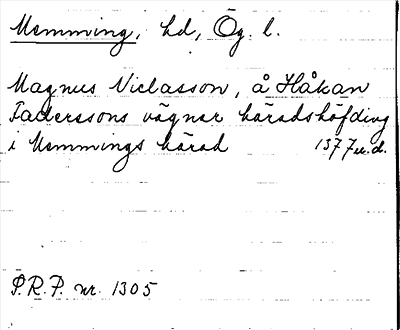 Memming, hd, Ög. l.
Magnus Niclasson, å Håkan
Faderssons vägnar häradshöfding
i Memmings härad 1377 u.d.
P.R.P. nr. 1305